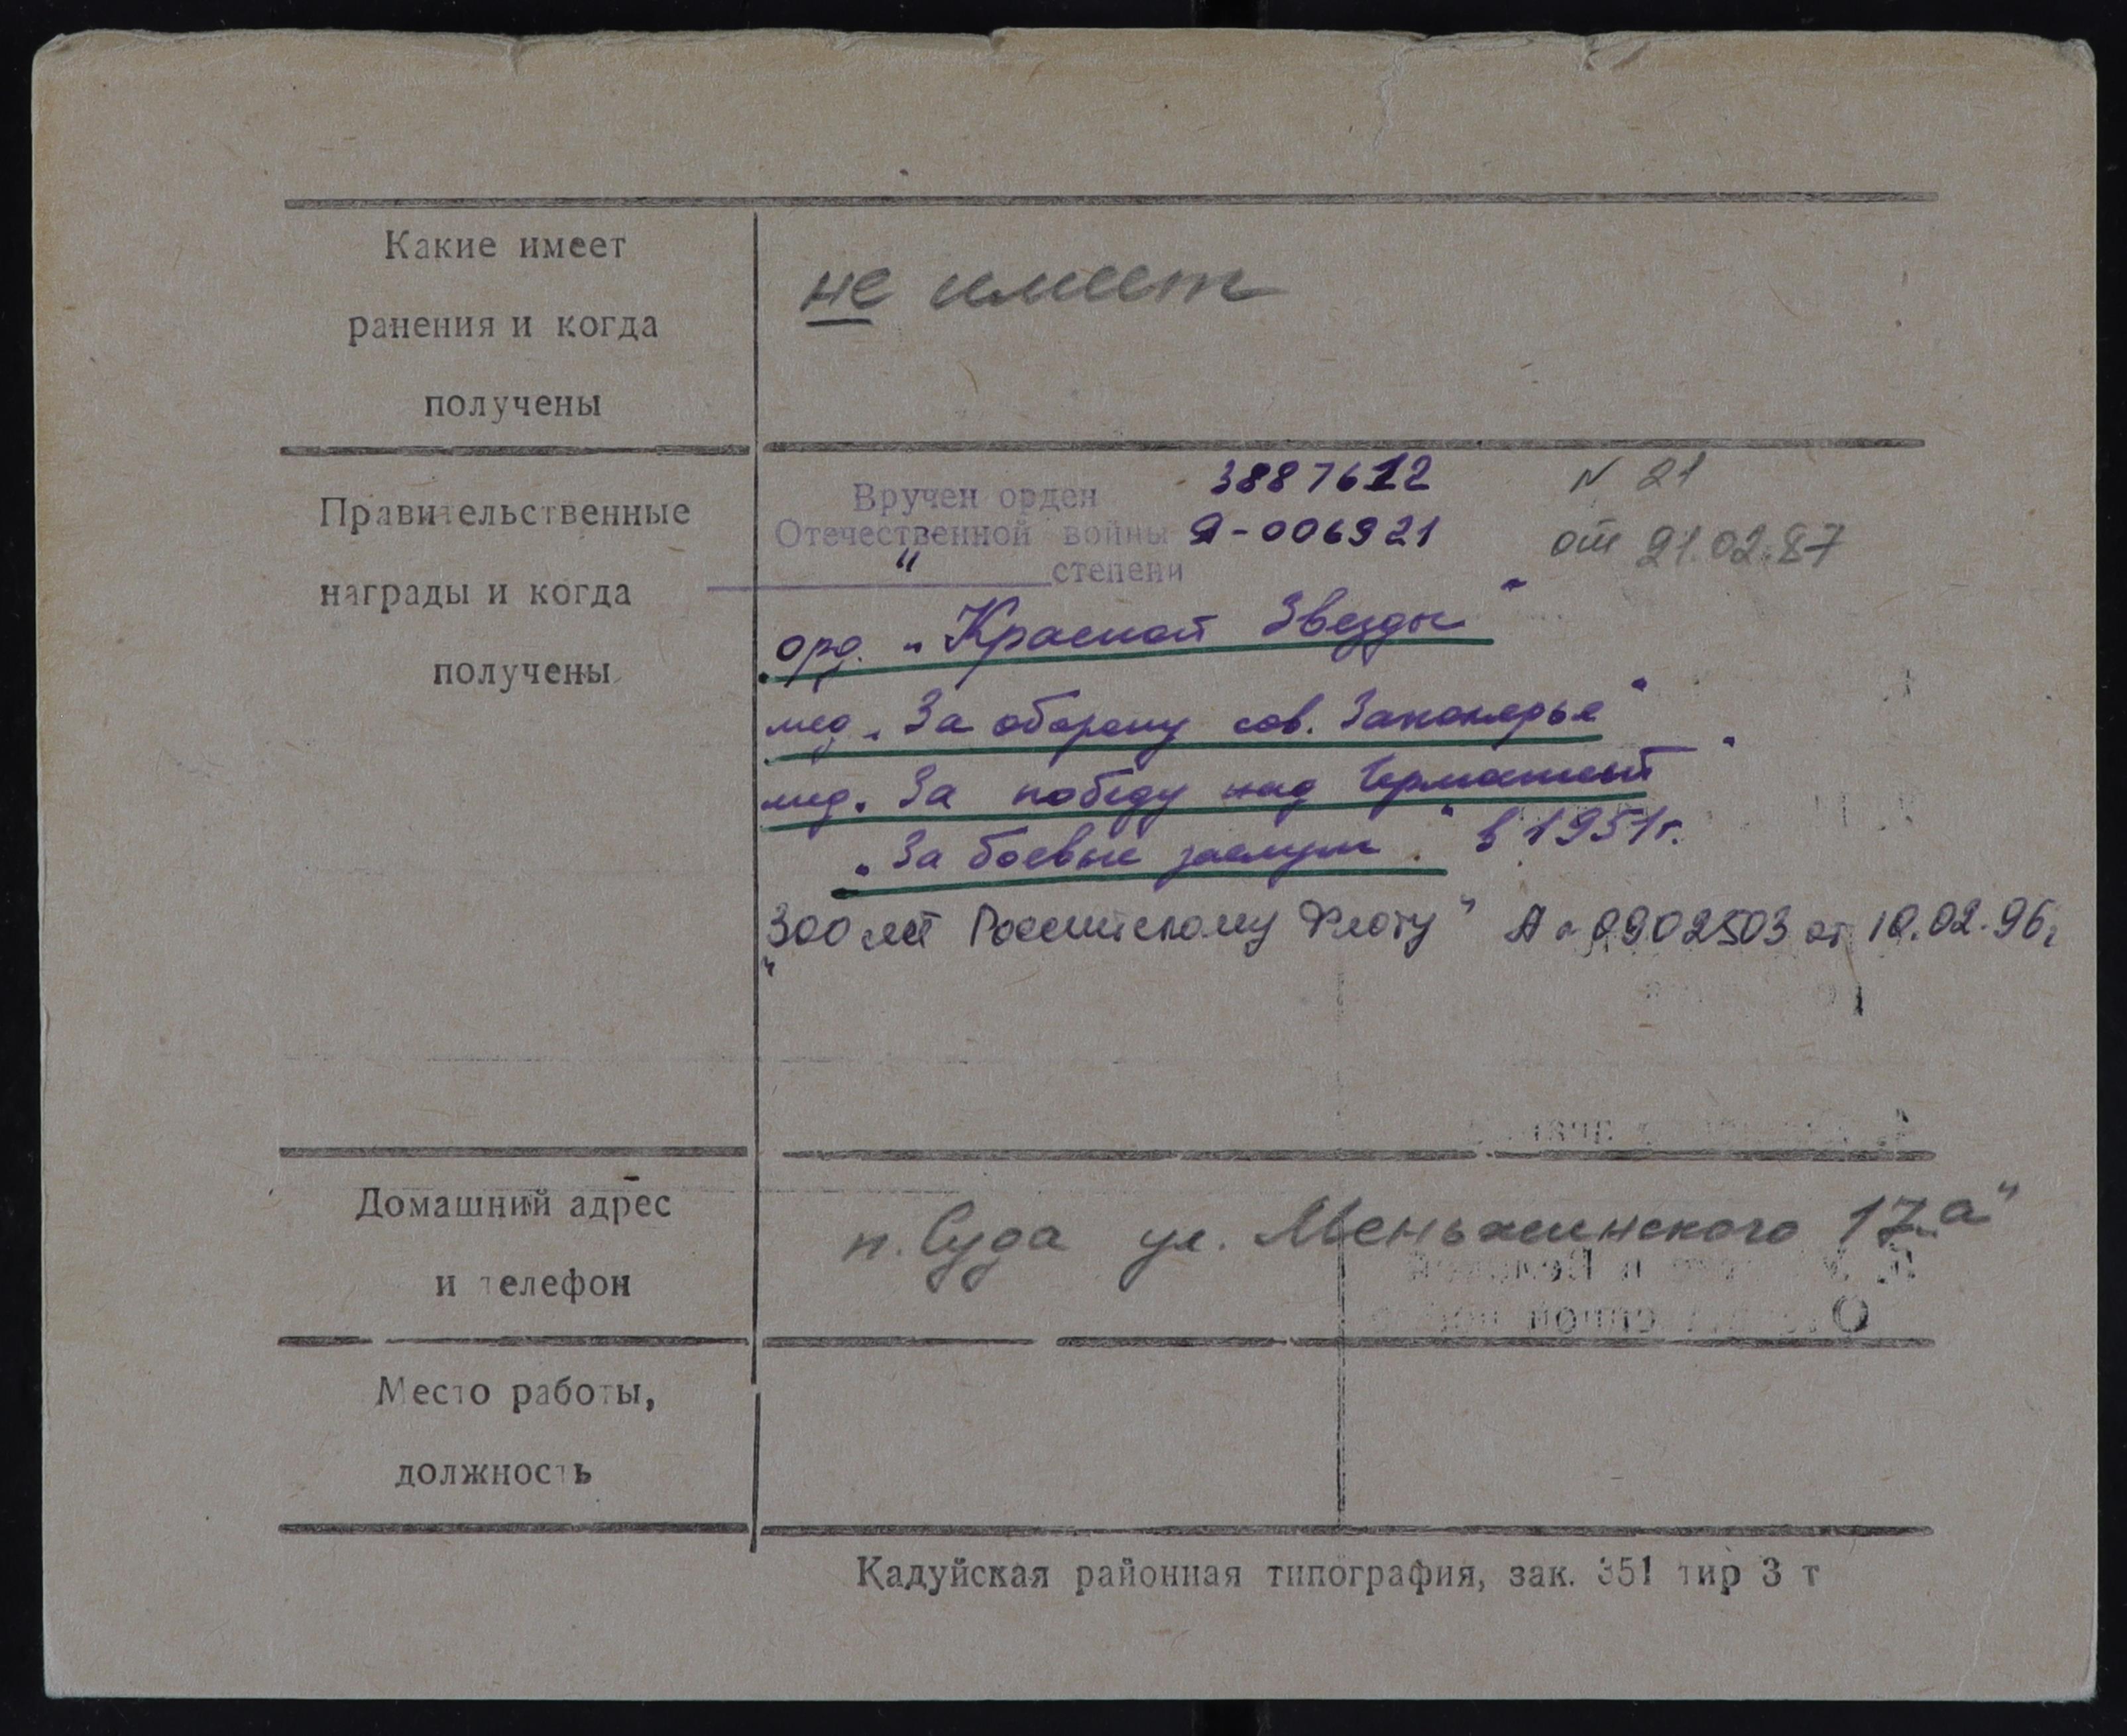 Какие имеет
ранения и когда
получены
не имеет
Правительственные
награды и когда
получены
Вручен орден 3887612 N 21
Отечественной войны Я-006921 от 21.02.87
" степени
орд. „Красной Звезды"
мед. „За оборону сов. Заполярья"
мед. „За победу над Германией"
„За боевые заслуги" в 1951г.
"300 лет Российскому Флоту" А № 0902503 от 10.02.96г
Домашний адрес
и телефон
п. Суда ул. Меньжинского 17„а"
Место работы,
должность
Кадуйская районная типография, зак. 351 тир 3 т